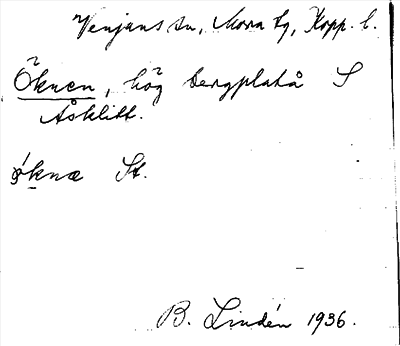 Venjans sn, Mora tg, Kopp. l.
Öknen, hög bergplatå S
Åsklitt.
ǿknæ St.
B. Lindén 1936.